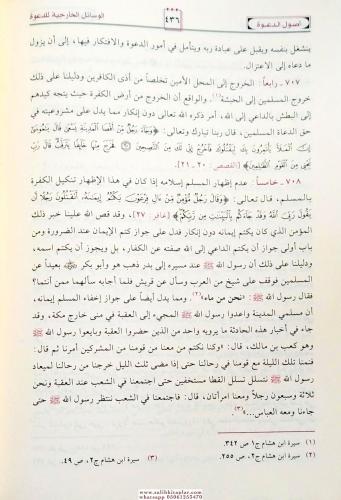 أصول الدعوة
٤٣٦
الوسائل الخارجية للدعوة
ينشغل بنفسه ويقبل على عبادة ربه ويتأمل في أمور الدعوة والافتكار فيها، إلى أن يزول
ما دعاه إلى الاعتزال.
٧٠٧ - رابعاً: الخروج إلى المحل الأمين تخلصاً من أذى الكافرين ودليلنا على ذلك
خروج المسلمين إلى الحبشة، والواقع أن الخروج من أرض الكفرة حيث يتجه كيدهم
إلى البطش بالداعي إلى الله، أمر ذكره الله تعالى دون إنكار مما يدل على مشروعيته في
حق الدعاة المسلمين، قال ربنا تبارك وتعالى: ﴿وَجَاءَ رَجُلٌ مِّنْ أَقْصَا الْمَدِينَةِ يَسْعَى قَالَ يَا مُوسَى
إِنَّ الْمَلَأَ يَأْتَمِرُونَ بِكَ لِيَقْتُلُوكَ فَاخْرُجْ إِنِّي لَكَ مِنَ النَّاصِحِينَ ۝ فَخَرَجَ مِنْهَا خَائِفًا يَتَرَقَّبُ قَالَ رَبِّ
نَجِّنِي مِنَ الْقَوْمِ الظَّالِمِينَ﴾ [القصص: ٢٠ - ٢١].
٧٠٨ - خامساً: عدم إظهار المسلم إسلامه إذا كان في هذا الإظهار تنكيل الكفرة
بالمسلم، قال تعالى: ﴿وَقَالَ رَجُلٌ مُّؤْمِنٌ مِّنْ آلِ فِرْعَوْنَ يَكْتُمُ إِيمَانَهُ أَتَقْتُلُونَ رَجُلًا أَن
يَقُولَ رَبِّيَ اللَّهُ وَقَدْ جَاءَكُم بِالْبَيِّنَاتِ مِن رَّبِّكُمْ﴾ [غافر: ٢٧]. وقد قص الله علينا خبر هذا
المؤمن الذي كان يكتم إيمانه دون إنكار فدل على جواز كتم الإيمان عند الضرورة ومن
باب أولى جواز أن يكتم الداعي إلى الله صفته عن الكفار، بل ويجوز أن يكتم اسمه،
ودليلنا على ذلك أن رسول الله ﷺ عند مسيره إلى بدر ذهب هو وأبو بكر بعيداً عن
المسلمين فوقف على شيخ من العرب وسأل عن قريش فلما أجابه سألهما ممن أنتما؟
فقال رسول الله ﷺ: «نحن من ماء»(٢). ومما يدل أيضاً على جواز إخفاء المسلم إيمانه،
أن مسلمي المدينة واعدوا رسول الله ﷺ المجيء إلى العقبة في منى خارج مكة، وقد
جاء في أخبار هذه الحادثة ما يرويه واحد من الذين حضروا العقبة وبايعوا رسول الله ﷺ
وهو كعب بن مالك، قال: «وكنا نكتم من معنا من قومنا من المشركين أمرنا ثم قال:
فنمنا تلك الليلة مع قومنا في رحالنا حتى إذا مضى ثلث الليل خرجنا من رحالنا لميعاد
رسول الله ﷺ نتسلل تسلل القطا مستخفين حتى اجتمعنا في الشعب عند العقبة ونحن
ثلاثة وسبعون رجلاً ومعنا امرأتان، قال: فاجتمعنا في الشعب ننتظر رسول الله ﷺ حتى
جاءنا ومعه العباس...»(٣)
(١) سيرة ابن هشام ج١ ص ٣٤٢.
(٢) سيرة ابن هشام ج٢، ص ٢٥٥.
(٣) سيرة ابن هشام ج٢، ص ٤٩.
www.salihkitaplar.com
whatsapp 05061255470